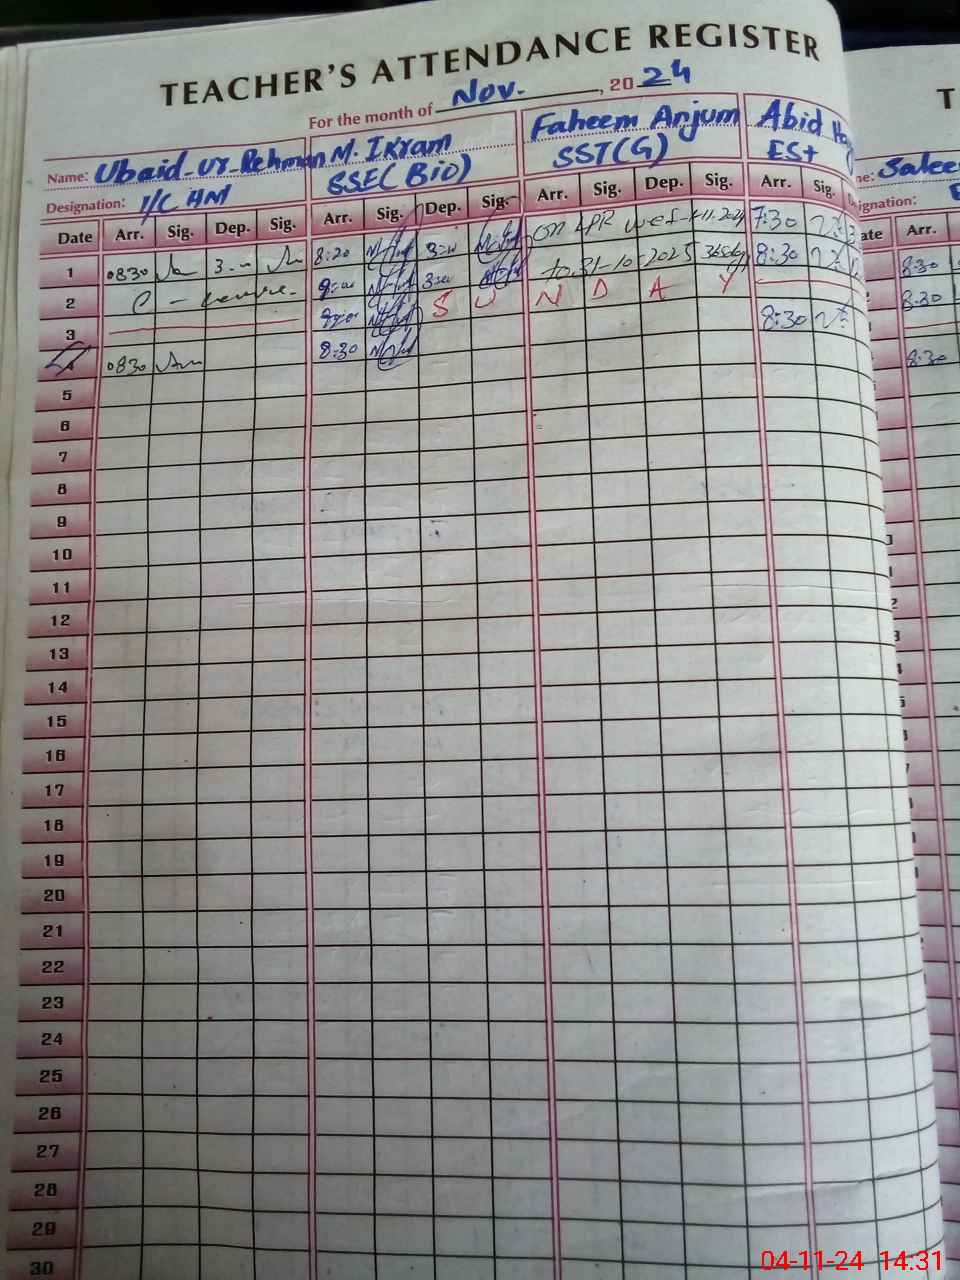 TEACHER'S ATTENDANCE REGISTER
For the month of Nov. , 20 24
Name: Ubaid-ur-Rehman M. Ikram Faheem Anjum Abid
Designation: I/C HM SSE(Bio) SST(G) EST
Date Arr. Sig. Dep. Sig. Arr. Sig. Dep. Sig. Arr. Sig. Dep. Sig. Arr. Sig.
1 0830 8:20 on LPR wef 1-11-2024 7:30
2 C - Leave. 9:00 to 31-10-2025 365days 8:30
3 9:00 S U N D A Y
4 0830 8:30 8:30
5
6
7
8
9
10
11
12
13
14
15
16
17
18
19
20
21
22
23
24
25
26
27
28
29
30
T
Salee
ignation:
ate Arr.
8:30
8:30
8:30
04-11-24 14:31